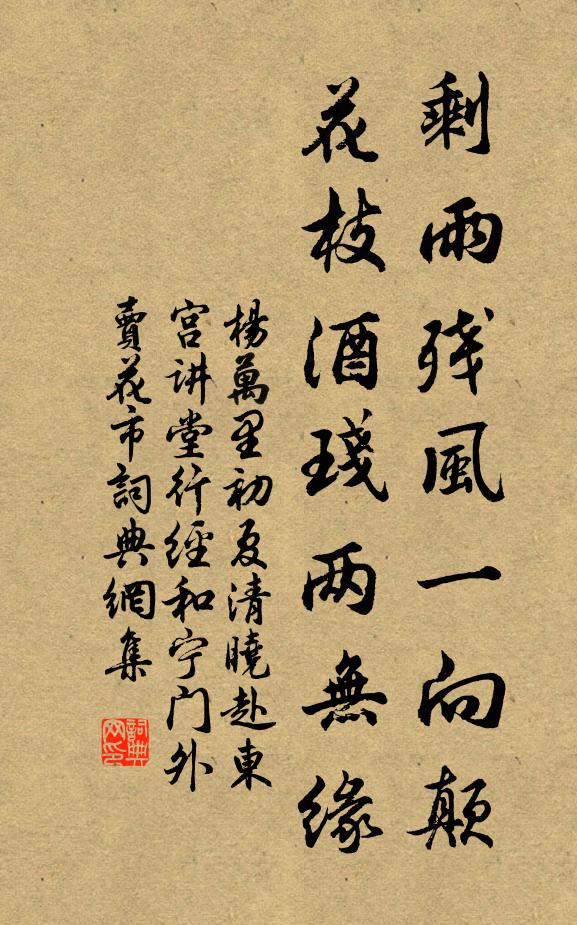 剩雨残風一向顛
花枝酒琖两無緣
楊萬里初夏清曉赴東
宮讲堂行經和宁门外
賣花市詞典網集
詞典网印